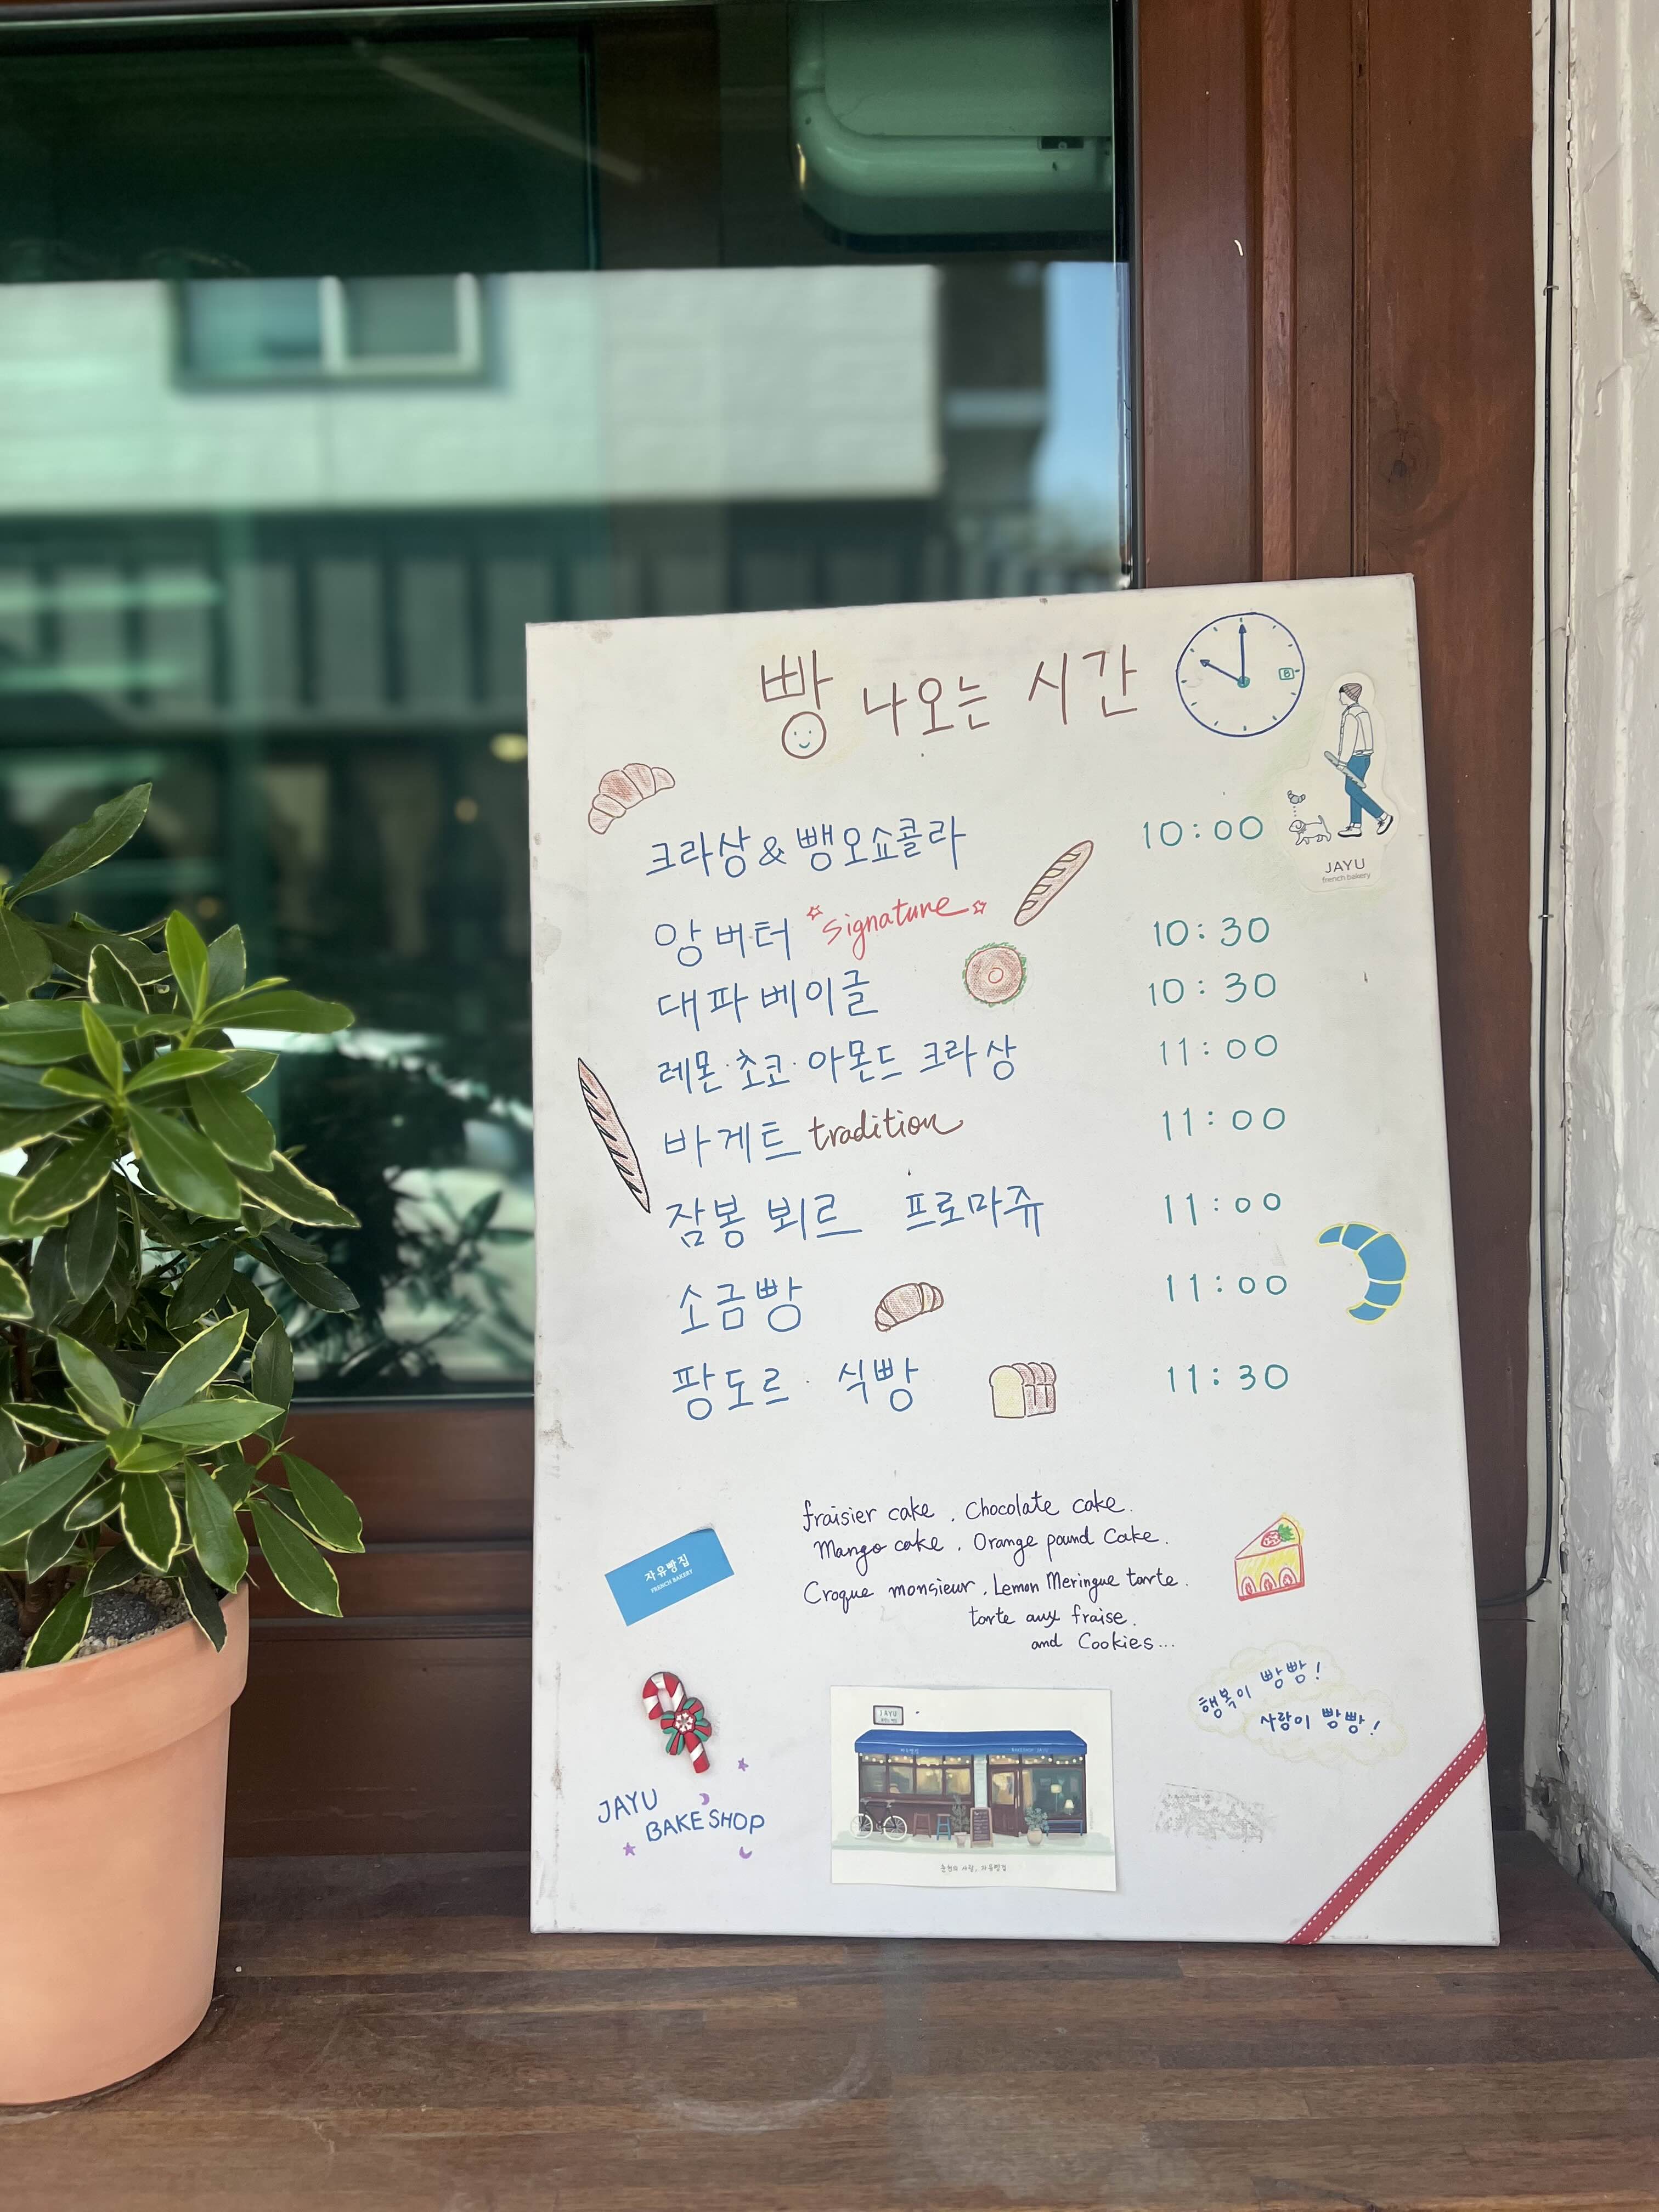 빵 나오는 시간
크라상 & 뺑오쇼콜라 10:00
앙버터 signature 10:30
대파베이글 10:30
레몬·초코·아몬드 크라상 11:00
바게트 tradition 11:00
잠봉 뵈르 프로마쥬 11:00
소금빵 11:00
팡도르 · 식빵 11:30
JAYU
french bakery
fraisier cake . Chocolate cake.
Mango cake . Orange pound Cake.
Croque monsieur . Lemon Meringue tarte.
tarte aux fraise.
and Cookies...
자유빵집
FRENCH BAKERY
행복이 빵빵!
사랑이 빵빵!
JAYU
BAKE SHOP
JAYU